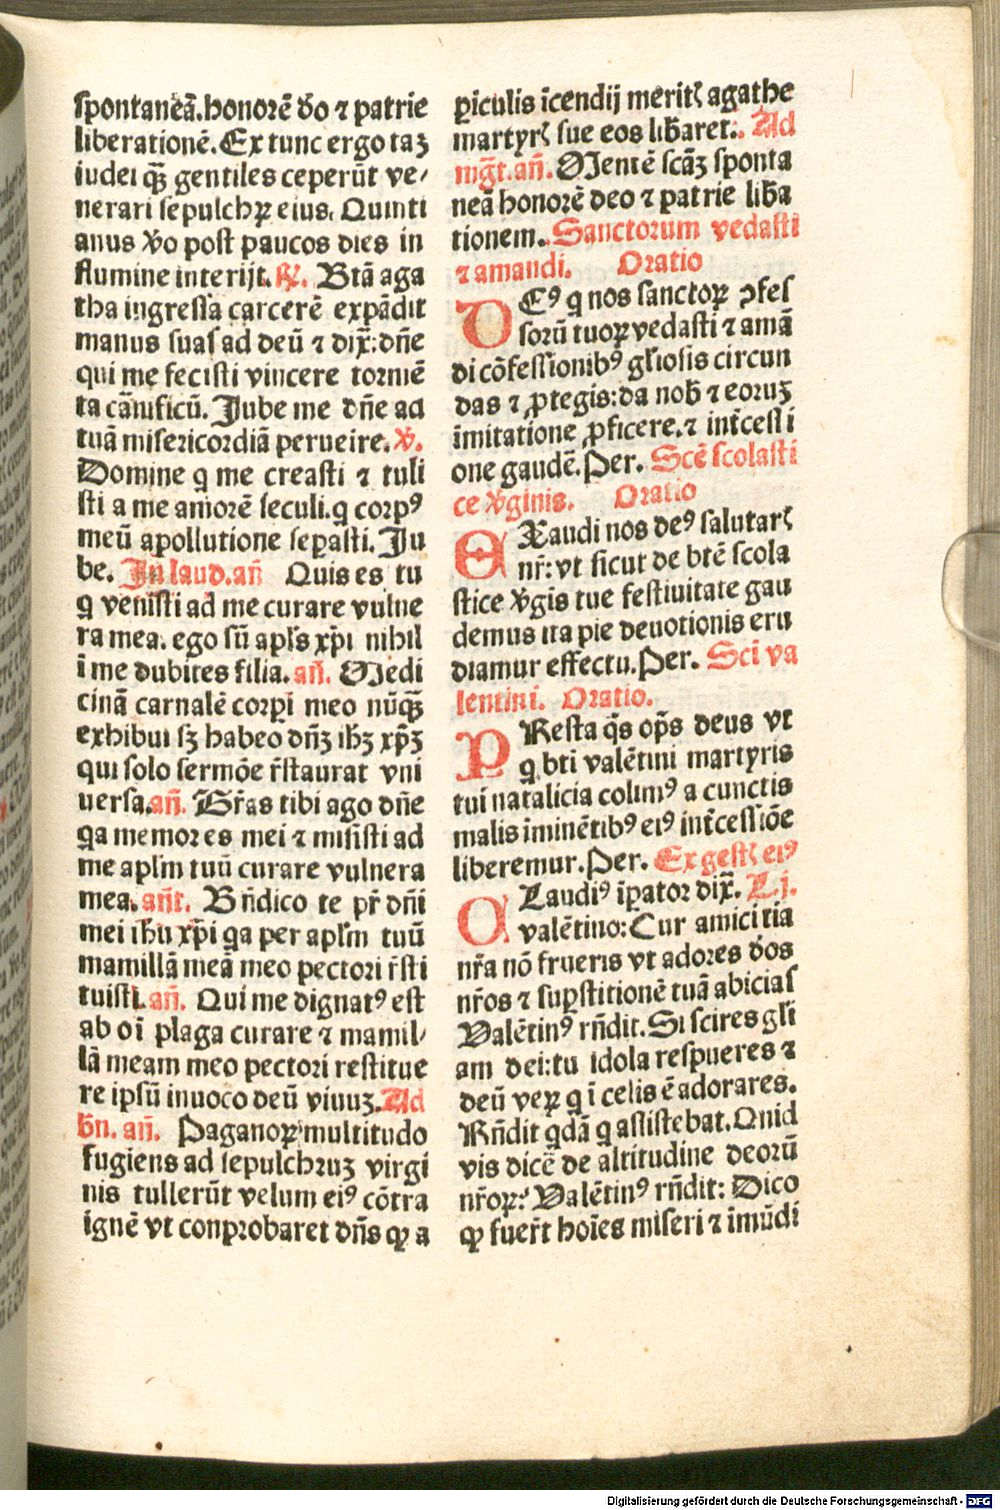 spontaneā.honorē d̄o ⁊ patrie
liberationē.Ex tunc ergo taʒ
iudei qʒ̄ gentiles ceperūt ve⸗
nerari sepulchꝝ eius. Quinti
anus v̄o post paucos dies in
flumine interijt. ℟. Btā aga
tha ingressa carcerē expādit
manus suas ad deū ⁊ dix̄:dn̄e
qui me fecisti vincere tormē
ta carnificū. Jube me dn̄e ad
tuā misericordiā perueire. v̄.
Domine q me creasti ⁊ tuli
sti a me amorē seculi.q corpꝰ
meū apollutione seꝑasti. Ju
be. In laud.an̄ Quis es tu
q venisti ad me curare vulne
ra mea. ego sū apl̄s xp̄i nihil
ī me dubites filia. an̄. Medi
cinā carnalē corpi meo nūqʒ̄
exhibui sʒ habeo dn̄ʒ ih̄ʒ xp̄ʒ
qui solo sermōe r̄staurat vni
uersa.an̄. Gr̄as tibi ago dn̄e
qa memor es mei ⁊ misisti ad
me apl̄m tuū curare vulnera
mea. an̄t. Bn̄dico te pr̄ dn̄i
mei ih̄u xp̄i qa per apl̄m tuū
mamillā meā meo pectori r̄sti
tuisti. an̄. Qui me dignatꝰ est
ab oī plaga curare ⁊ mamil⸗
lā meam meo pectori restitue
re ipsū inuoco deū viuuʒ. Ad
bn̄. an̄. Paganoꝝ multitudo
fugiens ad sepulchruʒ virgi
nis tullerūt velum eiꝰ cōtra
ignē vt conprobaret dn̄s ꝙ a
ꝑiculis īcendij meritꝭ agathe
martyrꝭ sue eos lib̄aret. Ad
mḡt.an̄. Mentē scāʒ sponta
neā honorē deo ⁊ patrie lib̄a
tionem. Sanctorum vedasti
⁊ amandi. Oratio
DEꝰ q nos sanctoꝝ ꝯfes
sorū tuoꝝ vedasti ⁊ amā
di cōfessionibꝰ gl̄iosis circun
das ⁊ ꝓtegis:da nob̄ ⁊ eoruʒ
īmitatione ꝓficere.⁊ int̄cessi
one gaudē.Per. Scē scolasti
ce v̄ginis. Oratio
EXaudi nos deꝰ salutarꝭ
nr̄:vt sicut de btē scola
stice v̄gis tue festiuitate gau
demus ita pie deuotionis eru
diamur effectu.Per. Sci va
lentini. Oratio.
PResta qs̄ op̄s deus vt
q bti valētini martyris
tui natalicia colimꝰ a cunctis
malis īminētibꝰ eiꝰ int̄cessiōe
liberemur.Per. Ex gestꝭ eiꝰ
CLaudiꝰ īpator dix̄. L.j.
valētino:Cur amicitia
nr̄a nō frueris vt adores d̄os
nr̄os ⁊ suꝑstitionē tuā abicias
Valētinꝰ rn̄dit.Si scires gl̄i
am dei:tu idola respueres ⁊
deū veꝝ q ī celis ē adorares.
Rn̄dit qdā q assistebat.Quid
vis dicē de altitudine deorū
nr̄oꝝ? Valētinꝰ rn̄dit: Dico
ꝙ fuer̄t hoīes miseri ⁊ īmūdi
Digitalisierung gefördert durch die Deutsche Forschungsgemeinschaft - DFG